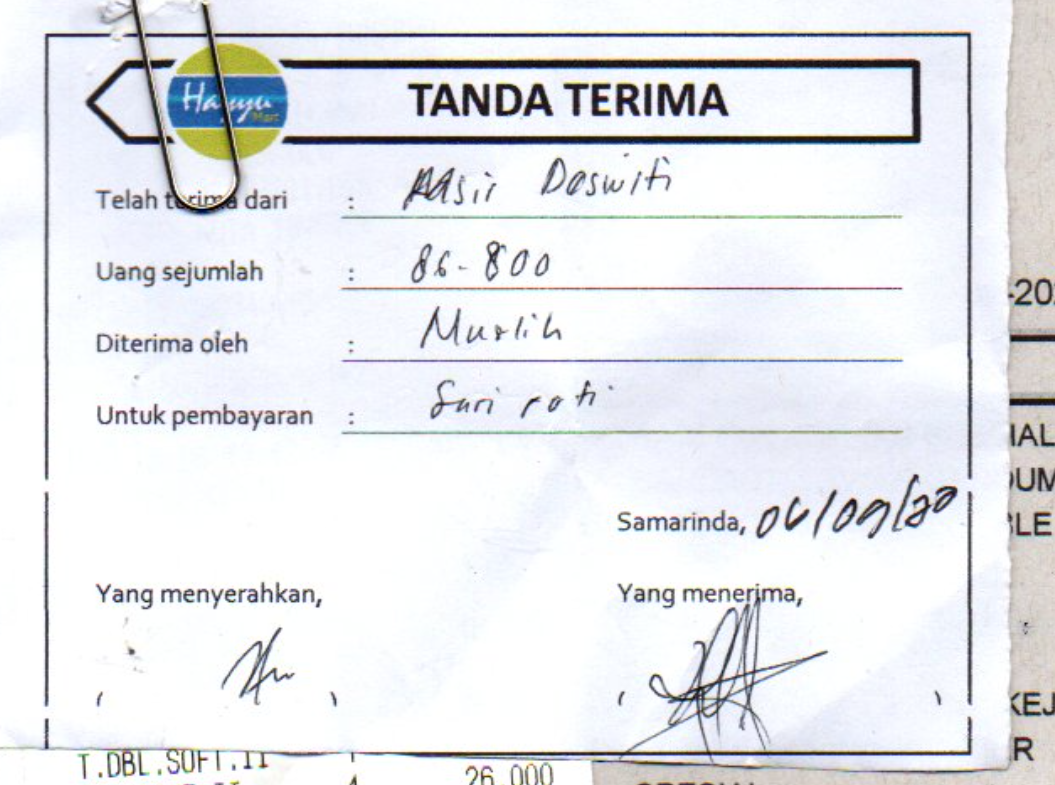 Hanyu
Mart
TANDA TERIMA
Telah terima dari :
Uang sejumlah : 86-800
Diterima oleh : Muslih
Untuk pembayaran : Sari roti
Samarinda, 06/09/20
Yang menyerahkan,
Yang menerima,
( )
( )
T.DBL.SOFT.II
26,000
-20
KEJ
R